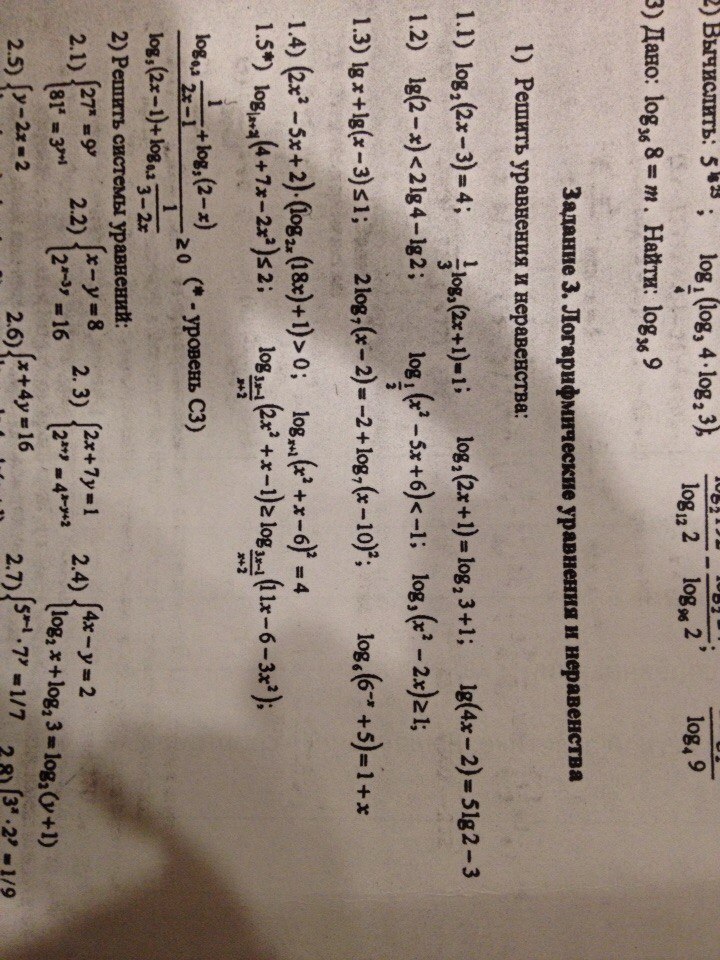 2) Вычислить: 5^{lg 25} ; log_{1/4}(log_3 4 · log_2 3);
log_{12} 2 − log_{96} 2 ; log_4 9
3) Дано: log_{36} 8 = m . Найти: log_{36} 9
Задание 3. Логарифмические уравнения и неравенства
1) Решить уравнения и неравенства:
1.1) log_2(2x−3)=4; 1/3 log_3(2x+1)=1; log_2(2x+1)=log_2 3+1; lg(4x−2)=5lg2−3
1.2) lg(2−x)<2lg4−lg2; log_{1/2}(x²−5x+6)<−1; log_3(x²−2x)≥1;
1.3) lg x+lg(x−3)≤1; 2log_7(x−2)=−2+log_7(x−10)²; log_6(6^{−x}+5)=1+x
1.4) (2x²−5x+2)·(log_{2x}(18x)+1)>0; log_{x+1}(x²+x−6)²=4
1.5*) log_{|x+2|}(4+7x−2x²)≤2; log_{(3x−1)/(x+2)}(2x²+x−1)≥log_{(3x−1)/(x+2)}(11x−6−3x²);
(log_{0,2} 1/(2x−1) + log_5(2−x)) / (log_5(2x−1)+log_{0,2} 1/(3−2x)) ≥0 (* - уровень С3)
2) Решить системы уравнений:
2.1) {27^x=9^y 81^x=3^{y+1} 2.2) {x−y=8 2^{x−3y}=16 2. 3) {2x+7y=1 2^{x+y}=4^{x−y+2} 2.4) {4x−y=2 log_2 x+log_2 3=log_2(y+1)
2.5) {y−2x=2 2.6) {x+4y=16 2.7) {5^{x−1}·7^y=1/7 2.8) {3^x·2^y=1/9